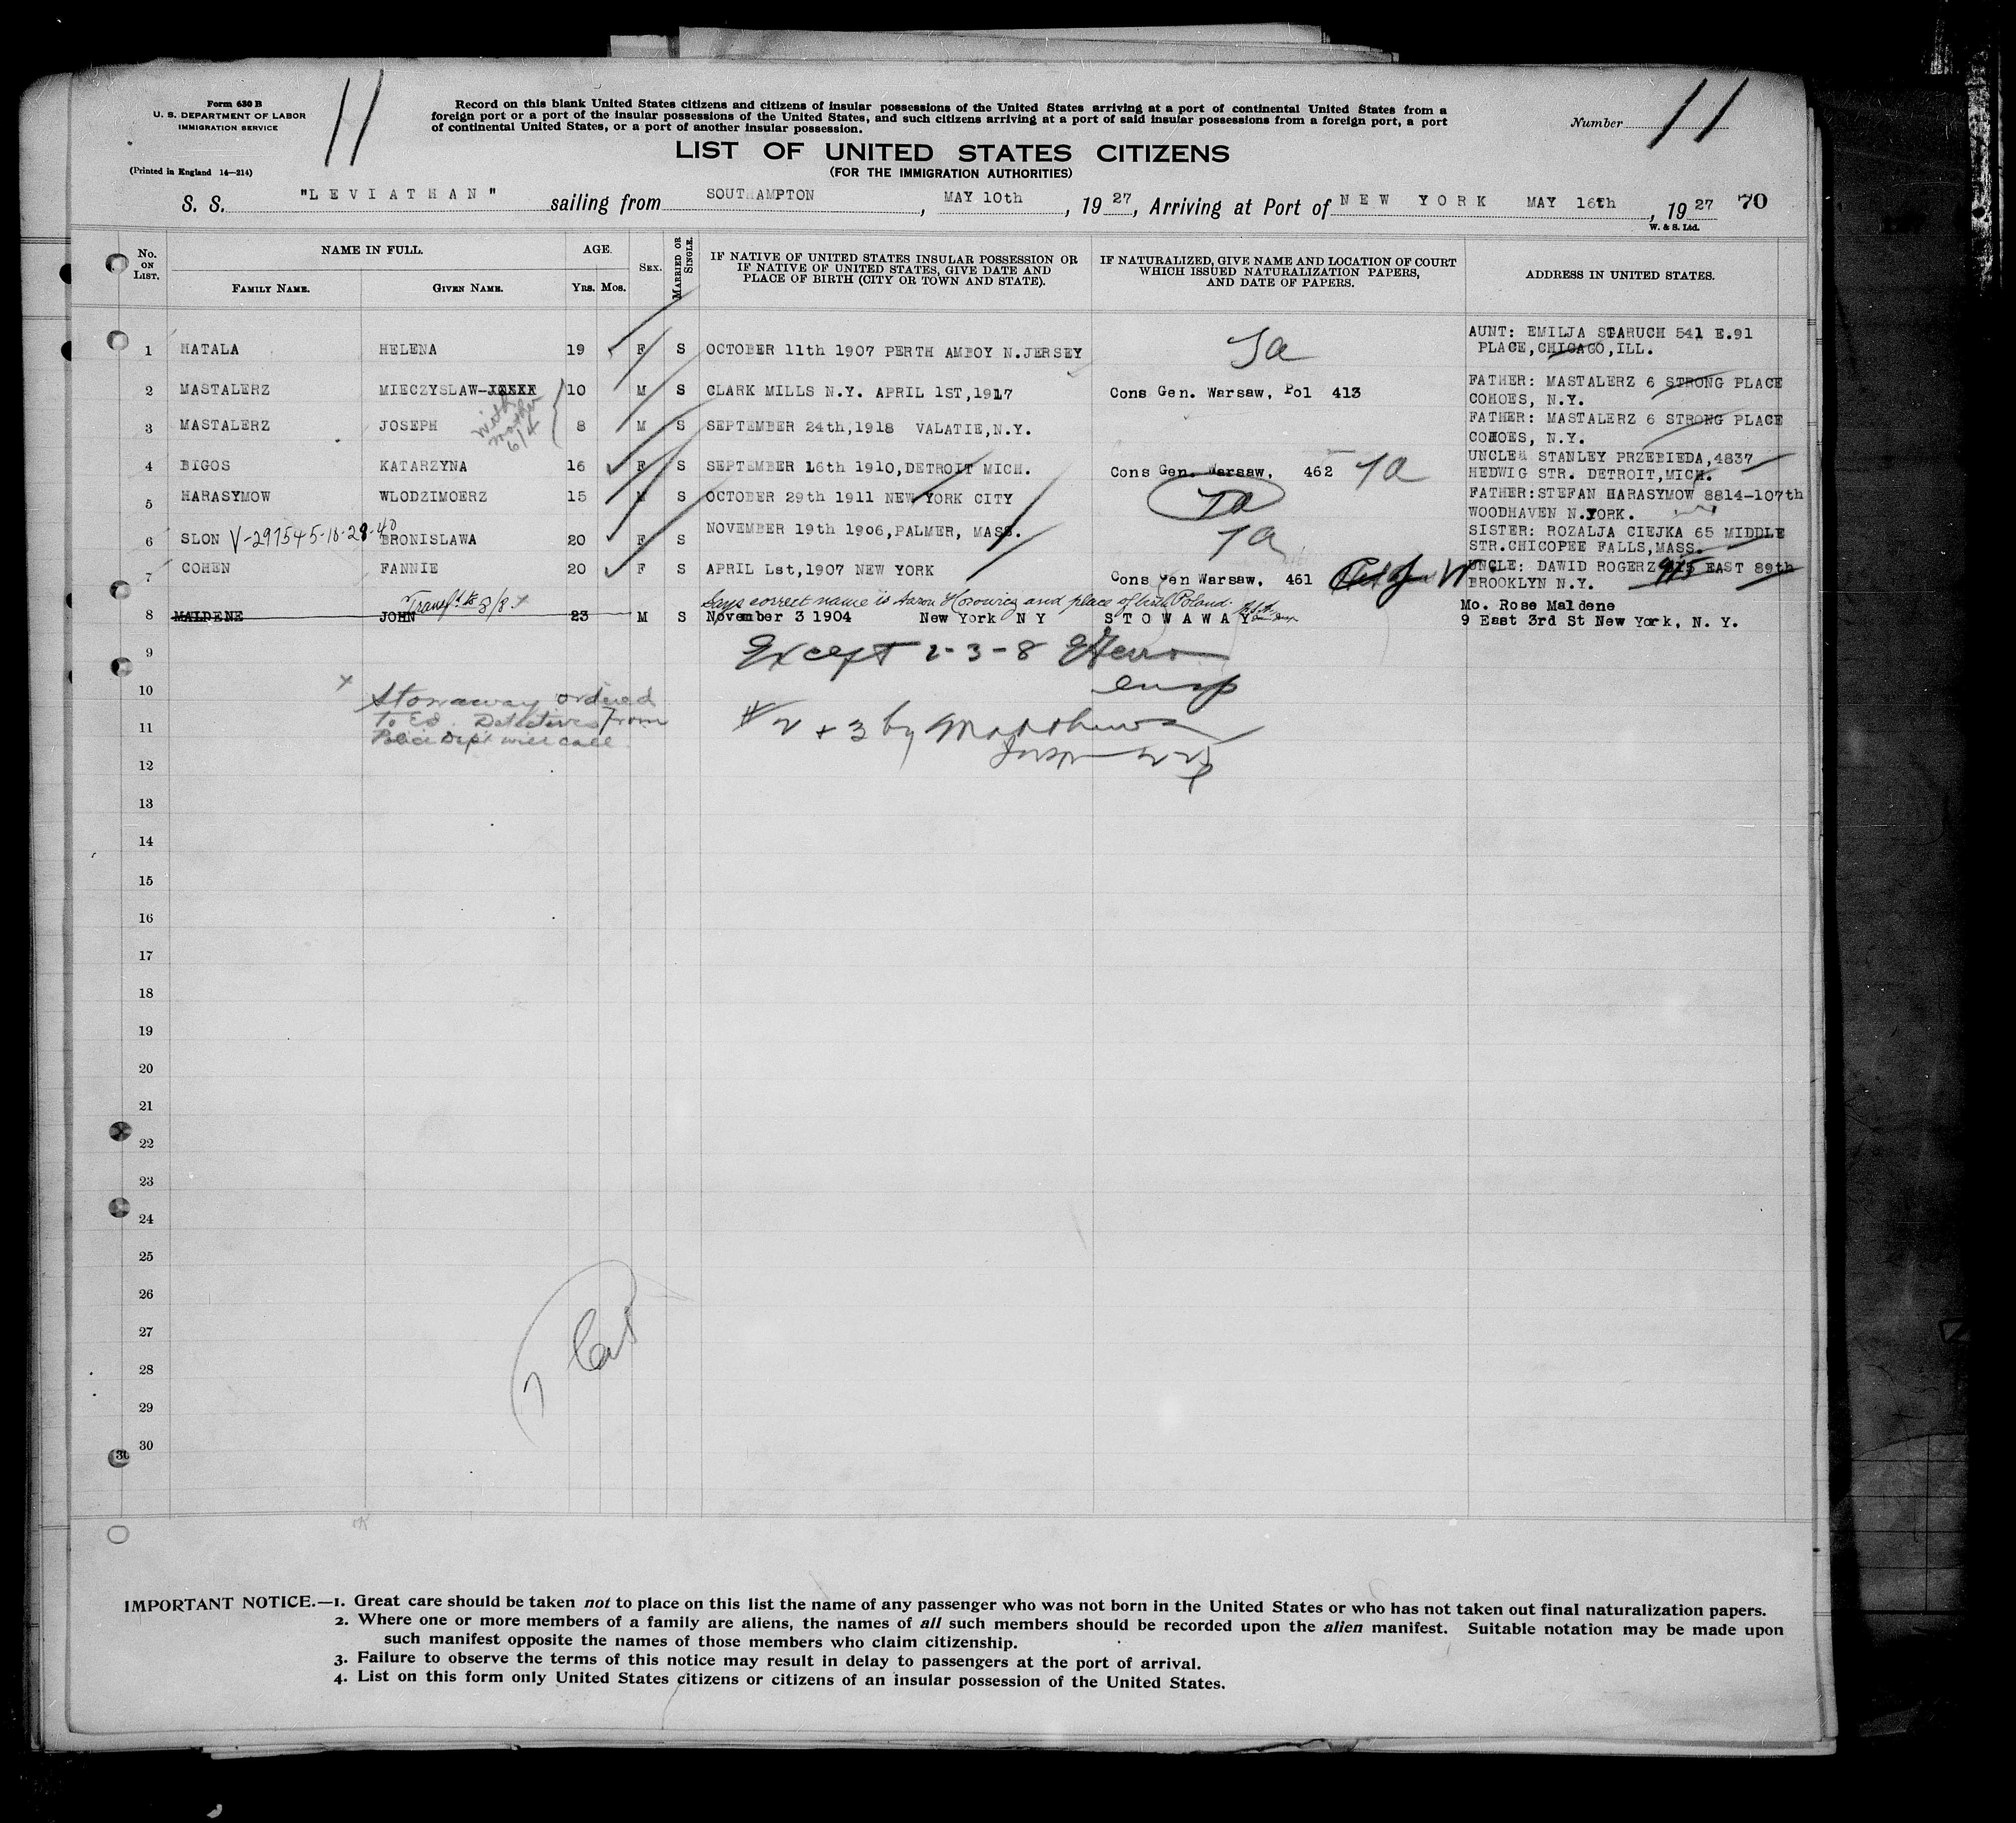 Form 630 B
U. S. DEPARTMENT OF LABOR
IMMIGRATION SERVICE
(Printed in England 14—214)
11
Record on this blank United States citizens and citizens of insular possessions of the United States arriving at a port of continental United States from a
foreign port or a port of the insular possessions of the United States, and such citizens arriving at a port of said insular possessions from a foreign port, a port
of continental United States, or a port of another insular possession.
Number 11
LIST OF UNITED STATES CITIZENS
(FOR THE IMMIGRATION AUTHORITIES)
S. S. "LEVIATHAN" sailing from SOUTHAMPTON, MAY 10th, 1927, Arriving at Port of NEW YORK MAY 16th, 1927 70
W. & S. Ltd.
No. ON LIST. NAME IN FULL. AGE. SEX. MARRIED OR SINGLE. IF NATIVE OF UNITED STATES INSULAR POSSESSION OR IF NATIVE OF UNITED STATES, GIVE DATE AND PLACE OF BIRTH (CITY OR TOWN AND STATE). IF NATURALIZED, GIVE NAME AND LOCATION OF COURT WHICH ISSUED NATURALIZATION PAPERS, AND DATE OF PAPERS. ADDRESS IN UNITED STATES.
FAMILY NAME. GIVEN NAME. Yrs. Mos.
AUNT: EMILJA STARUCH 541 E.91
1 HATALA HELENA 19 F S OCTOBER 11th 1907 PERTH AMBOY N.JERSEY PLACE, CHICAGO, ILL.
2 MASTALERZ MIECZYSLAW 10 M S CLARK MILLS N.Y. APRIL 1ST, 1917 Cons Gen. Warsaw, Pol 413 FATHER: MASTALERZ 6 STRONG PLACE
COHOES, N.Y.
with mother 6/4
3 MASTALERZ JOSEPH 8 M S SEPTEMBER 24th, 1918 VALATIE, N.Y. FATHER: MASTALERZ 6 STRONG PLACE
COHOES, N.Y.
4 BIGOS KATARZYNA 16 F S SEPTEMBER 16th 1910, DETROIT MICH. Cons Gen. Warsaw, 462 UNCLE: STANLEY PRZEBIEDA, 4837
HEDWIG STR. DETROIT, MICH.
5 HARASYMOW WLODZIMOERZ 15 M S OCTOBER 29th 1911 NEW YORK CITY FATHER: STEFAN HARASYMOW 8814-107th
WOODHAVEN N.YORK.
6 SLON V-297545-10-29-40 BRONISLAWA 20 F S NOVEMBER 19th 1906, PALMER, MASS. SISTER: ROZALJA CIEJKA 65 MIDDLE
STR. CHICOPEE FALLS, MASS.
7 COHEN FANNIE 20 F S APRIL Lst, 1907 NEW YORK Cons Gen Warsaw, 461 UNCLE: DAWID ROGERZ 915 EAST 89th
BROOKLYN N.Y.
Transf'd to 8/8 x Says correct name is Aaron Horowicz and place of birth Poland. Mo. Rose Maldene
8 MALDENE JOHN 23 M S November 3 1904 New York N Y STOWAWAY 9 East 3rd St New York, N. Y.
9
Except 2-3-8
10
x Stowaway ordered
to E.I. Detectives from
Police Dept will call
11
# 2 + 3 by Matthews
12
13
14
15
16
17
18
19
20
21
22
23
24
25
26
27
28
29
30
IMPORTANT NOTICE.—1. Great care should be taken not to place on this list the name of any passenger who was not born in the United States or who has not taken out final naturalization papers.
2. Where one or more members of a family are aliens, the names of all such members should be recorded upon the alien manifest. Suitable notation may be made upon
such manifest opposite the names of those members who claim citizenship.
3. Failure to observe the terms of this notice may result in delay to passengers at the port of arrival.
4. List on this form only United States citizens or citizens of an insular possession of the United States.